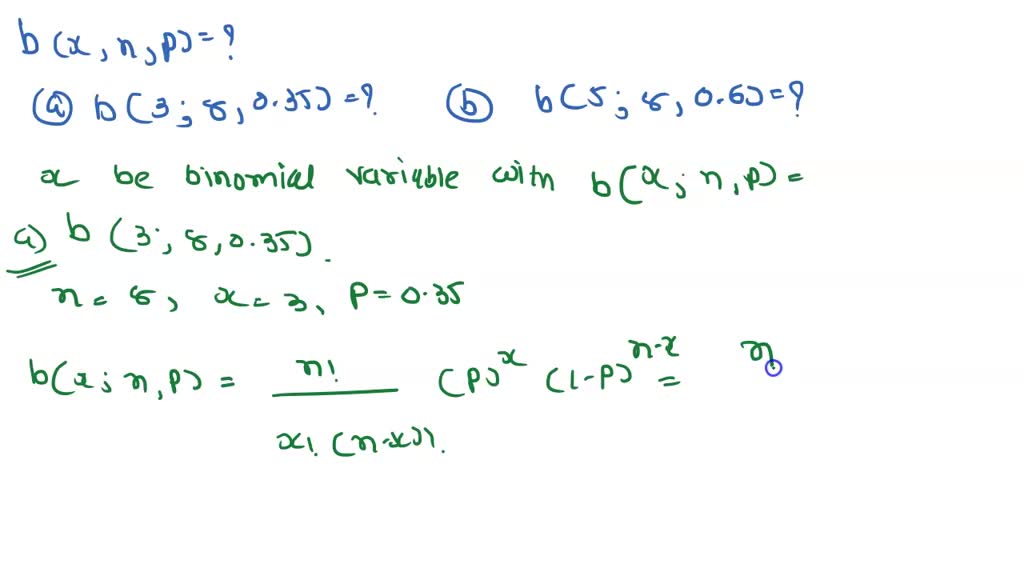 b(x, n, p) = ?
(a) b(3; 8, 0.35) = ? (b) b(5; 8, 0.6) = ?
x be binomial variable with b(x; n, p) =
a) b(3; 8, 0.35).
n = 8, x = 3, P = 0.35
b(x; n, p) = n! / x! (n-x)! (p)^x (1-p)^n-x = n